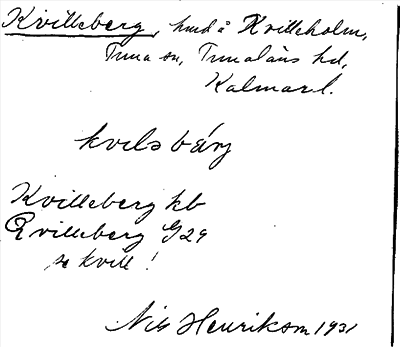 Kvilleberg, hmd å Kvilleholm,
Tuna sn, Tunaläns hd,
Kalmar l.
kvilsbärj
Kvilleberg kb
Qvilleberg G29
se kvill!
Nils Henrikson 1931